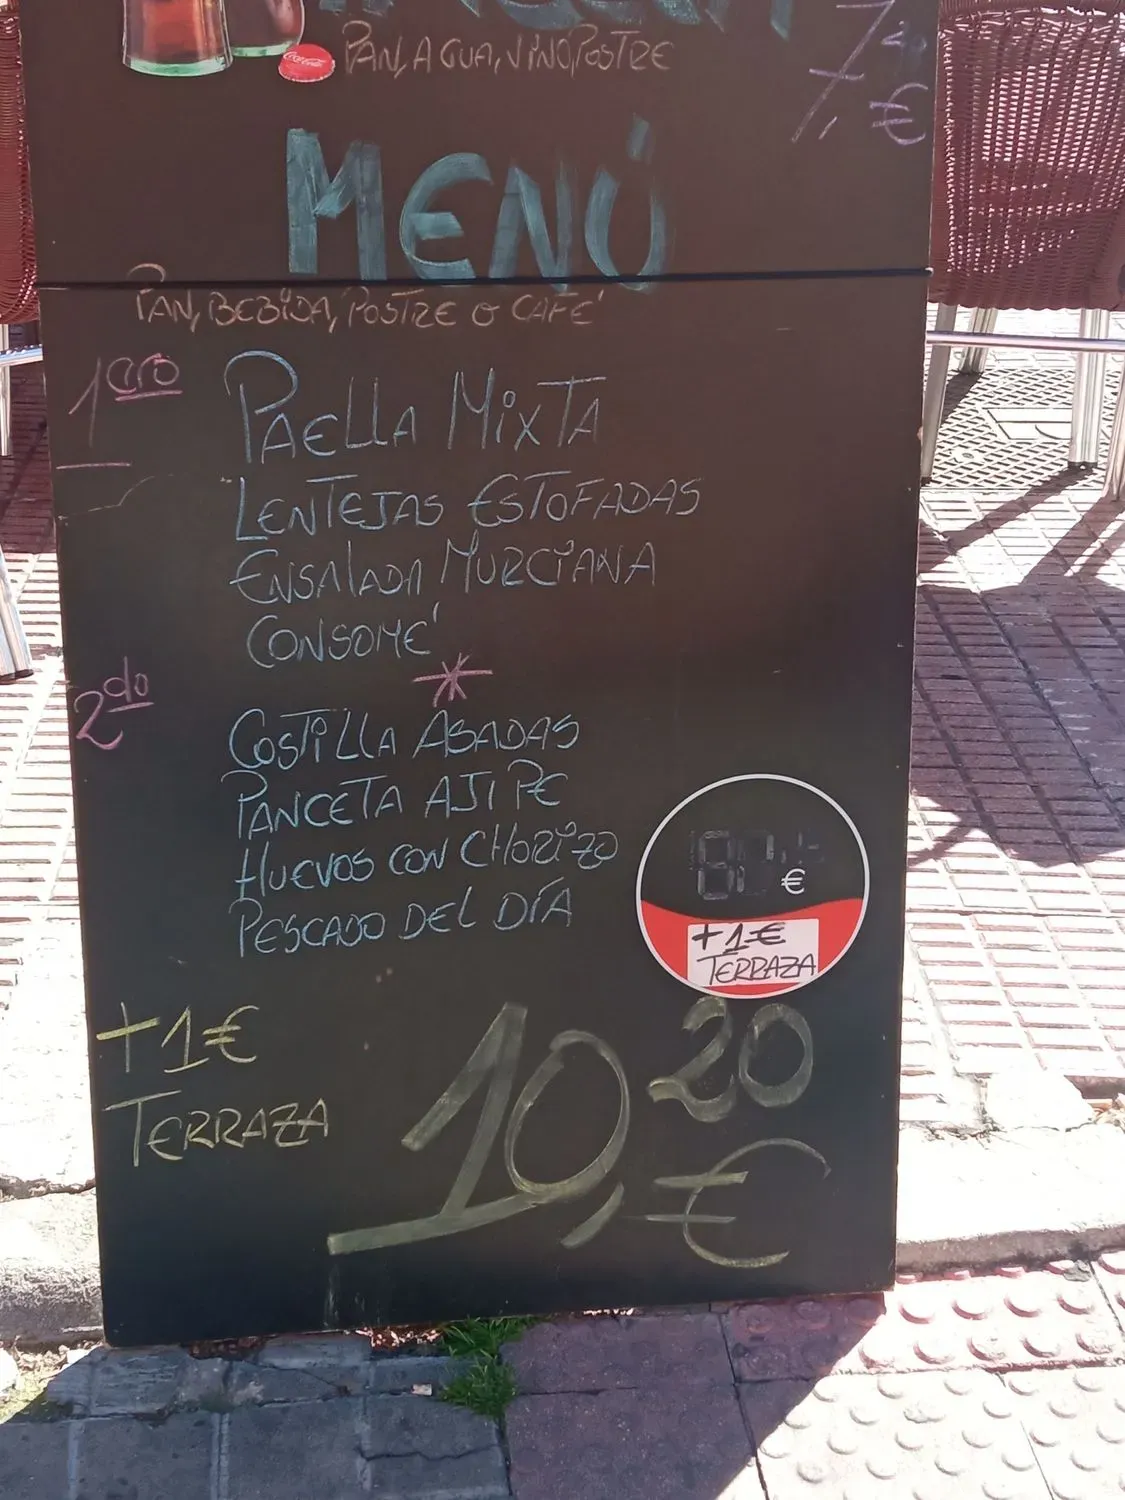 Coca-Cola
PAN, AGUA, VINO, POSTRE
7,40 €
MENÚ
PAN, BEBIDA, POSTRE O CAFÉ
1ERO
PAELLA MIXTA
LENTEJAS ESTOFADAS
ENSALADA MURCIANA
CONSOMÉ
*
2do
COSTILLA ASADAS
PANCETA AJIPE
HUEVOS CON CHORIZO
PESCADO DEL DÍA
€
+1€
TERRAZA
+1€
TERRAZA
10,20 €